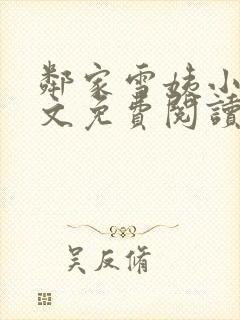 鄰家雪姨小
文免費閱讀
吴反脩